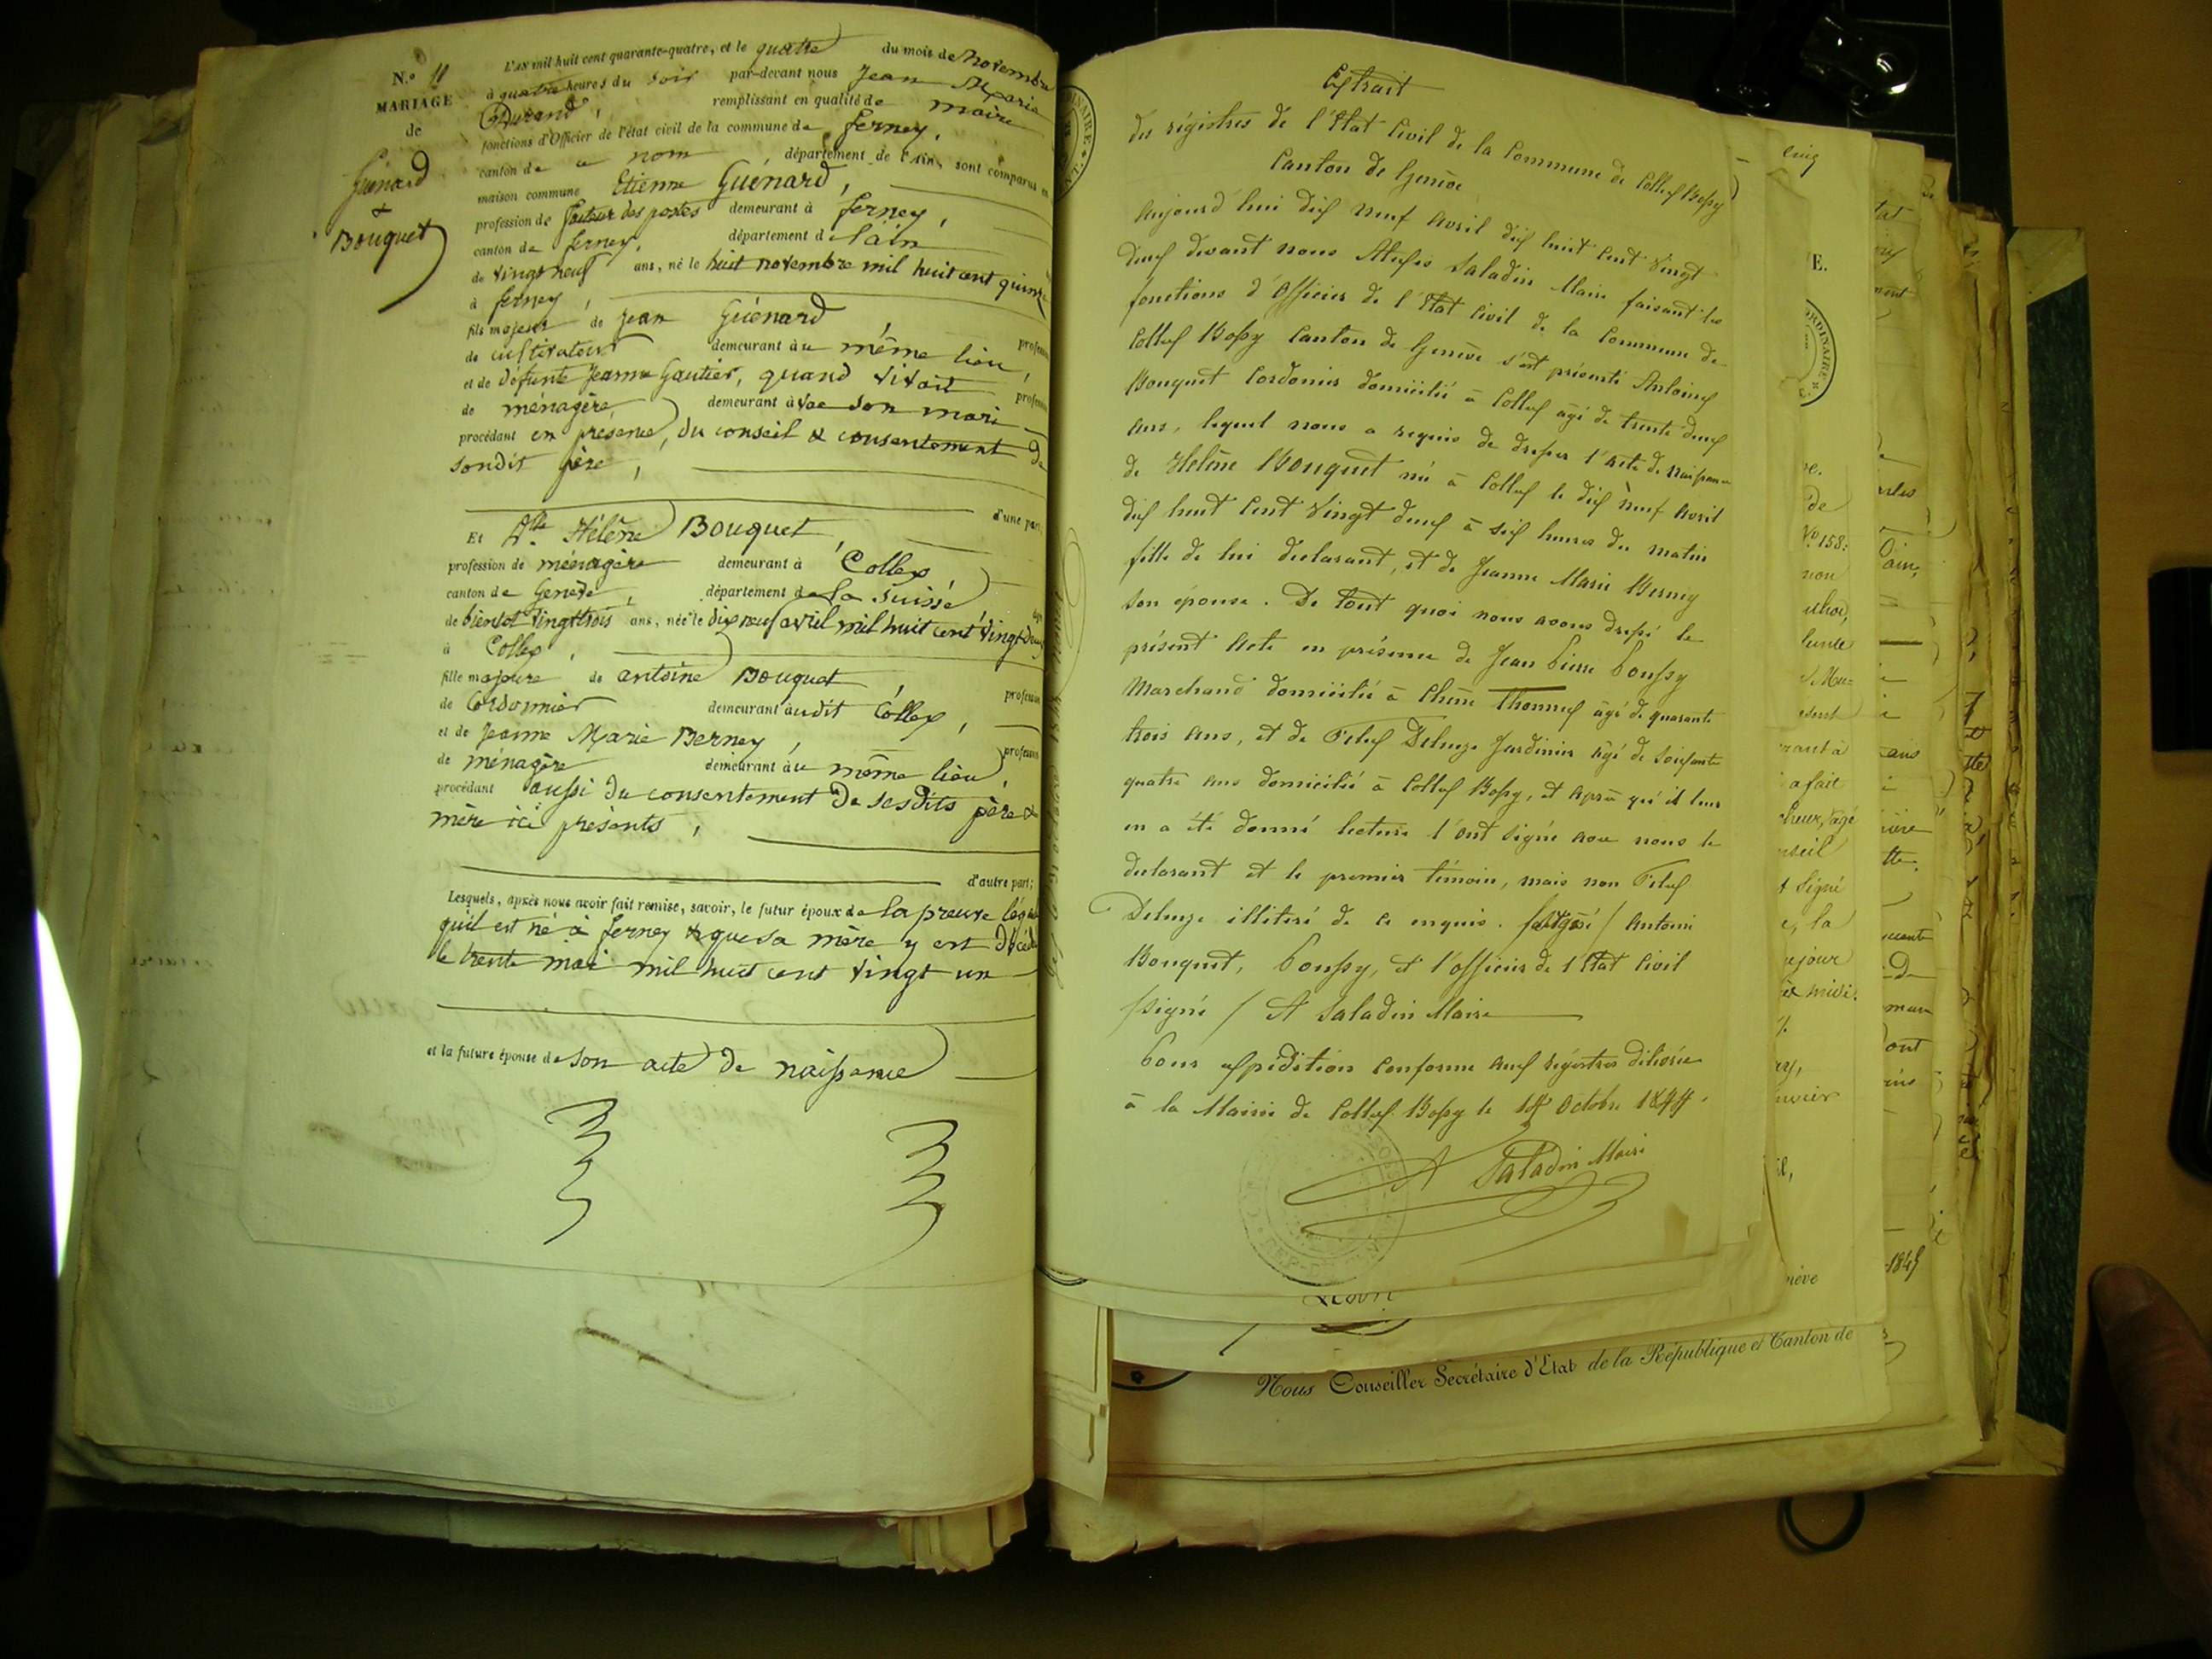 N.o 11
MARIAGE
de
Guénard
&
Bouquet
L'AN mil huit cent quarante-quatre, et le quatre du mois de Novembre
à quatre heures du soir par-devant nous Jean Marie
Durand, remplissant en qualité de maire
fonctions d'Officier de l'état civil de la commune de ferney,
canton de ce nom département de l'Ain, sont comparus en
maison commune Etienne Guénard,
profession de facteur des postes demeurant à ferney,
canton de ferney, département de l'ain
de vingt neuf ans, né le huit novembre mil huit cent quinze
à ferney,
fils majeur de Jean Guénard, profession
de cultivateur demeurant au même lieu,
et de défunte Jeanne Gautier, quand vivait profession
de ménagère, demeurant avec son mari
procédant en présence, du conseil & consentement de
sondit père,
d'une part
Et Dlle Hélène Bouquet,
profession de ménagère demeurant à Collex,
canton de Genève, département de la Suisse
de bientot vingt trois ans, née le dix neuf avril mil huit cent vingt deux
à Collex,
fille majeure de antoine Bouquet, profession
de Cordonnier demeurant audit Collex,
et de Jeanne Marie Berney, profession
de ménagère demeurant au même lieu,
procédant aussi du consentement de sesdits père &
mère ici présents,
d'autre part;
Lesquels, après nous avoir fait remise, savoir, le futur époux de la preuve légale
qu'il est né à ferney & que sa mère y est décédée
le trente mai mil huit cent vingt un
et la future épouse de son acte de naissance
Extrait
des régistres de l'Etat Civil de la Commune de Collex Bossy
Canton de Genève
Aujourd'hui dix neuf Avril dix huit cent vingt
deux devant nous Alexis Saladin Maire faisant les
fonctions d'Officier de l'Etat Civil de la Commune de
Collex Bossy Canton de Genève s'est présenté Antoine
Bouquet Cordonier domicilié à Collex âgé de trente deux
ans, lequel nous a requis de dresser l'acte de naissance
de Helêne Bouquet né à Collex le dix neuf Avril
dix huit cent vingt deux à six heures du matin
fille de lui déclarant, et de Jeanne Marie Berney
son épouse. De tout quoi nous avons dressé le
présent Acte en présence de Jean Pierre Poussy
Marchand domicilié à Chêne Thonnex âgé de quarante
trois ans, et de Felix Deluze Jardinier âgé de soixante
quatre ans domicilié à Collex Bossy, et après qu'il leur
en a été donné lecture l'ont signé avec nous le
déclarant et le premier témoin, mais non Felix
Deluze illitéré de ce enquis. signé / Antoine
Bouquet, Poussy, et l'officier de l'Etat Civil
/signé / A Saladin Maire
Pour expédition conforme aux régistres délivrée
à la Mairie de Collex Bossy le 14 Octobre 1844.
A Saladin Maire
Nous Conseiller Secrétaire d'Etat de la République et Canton de
cinq
E.
de
No 158:
non
afait
seil
signé
la
1845